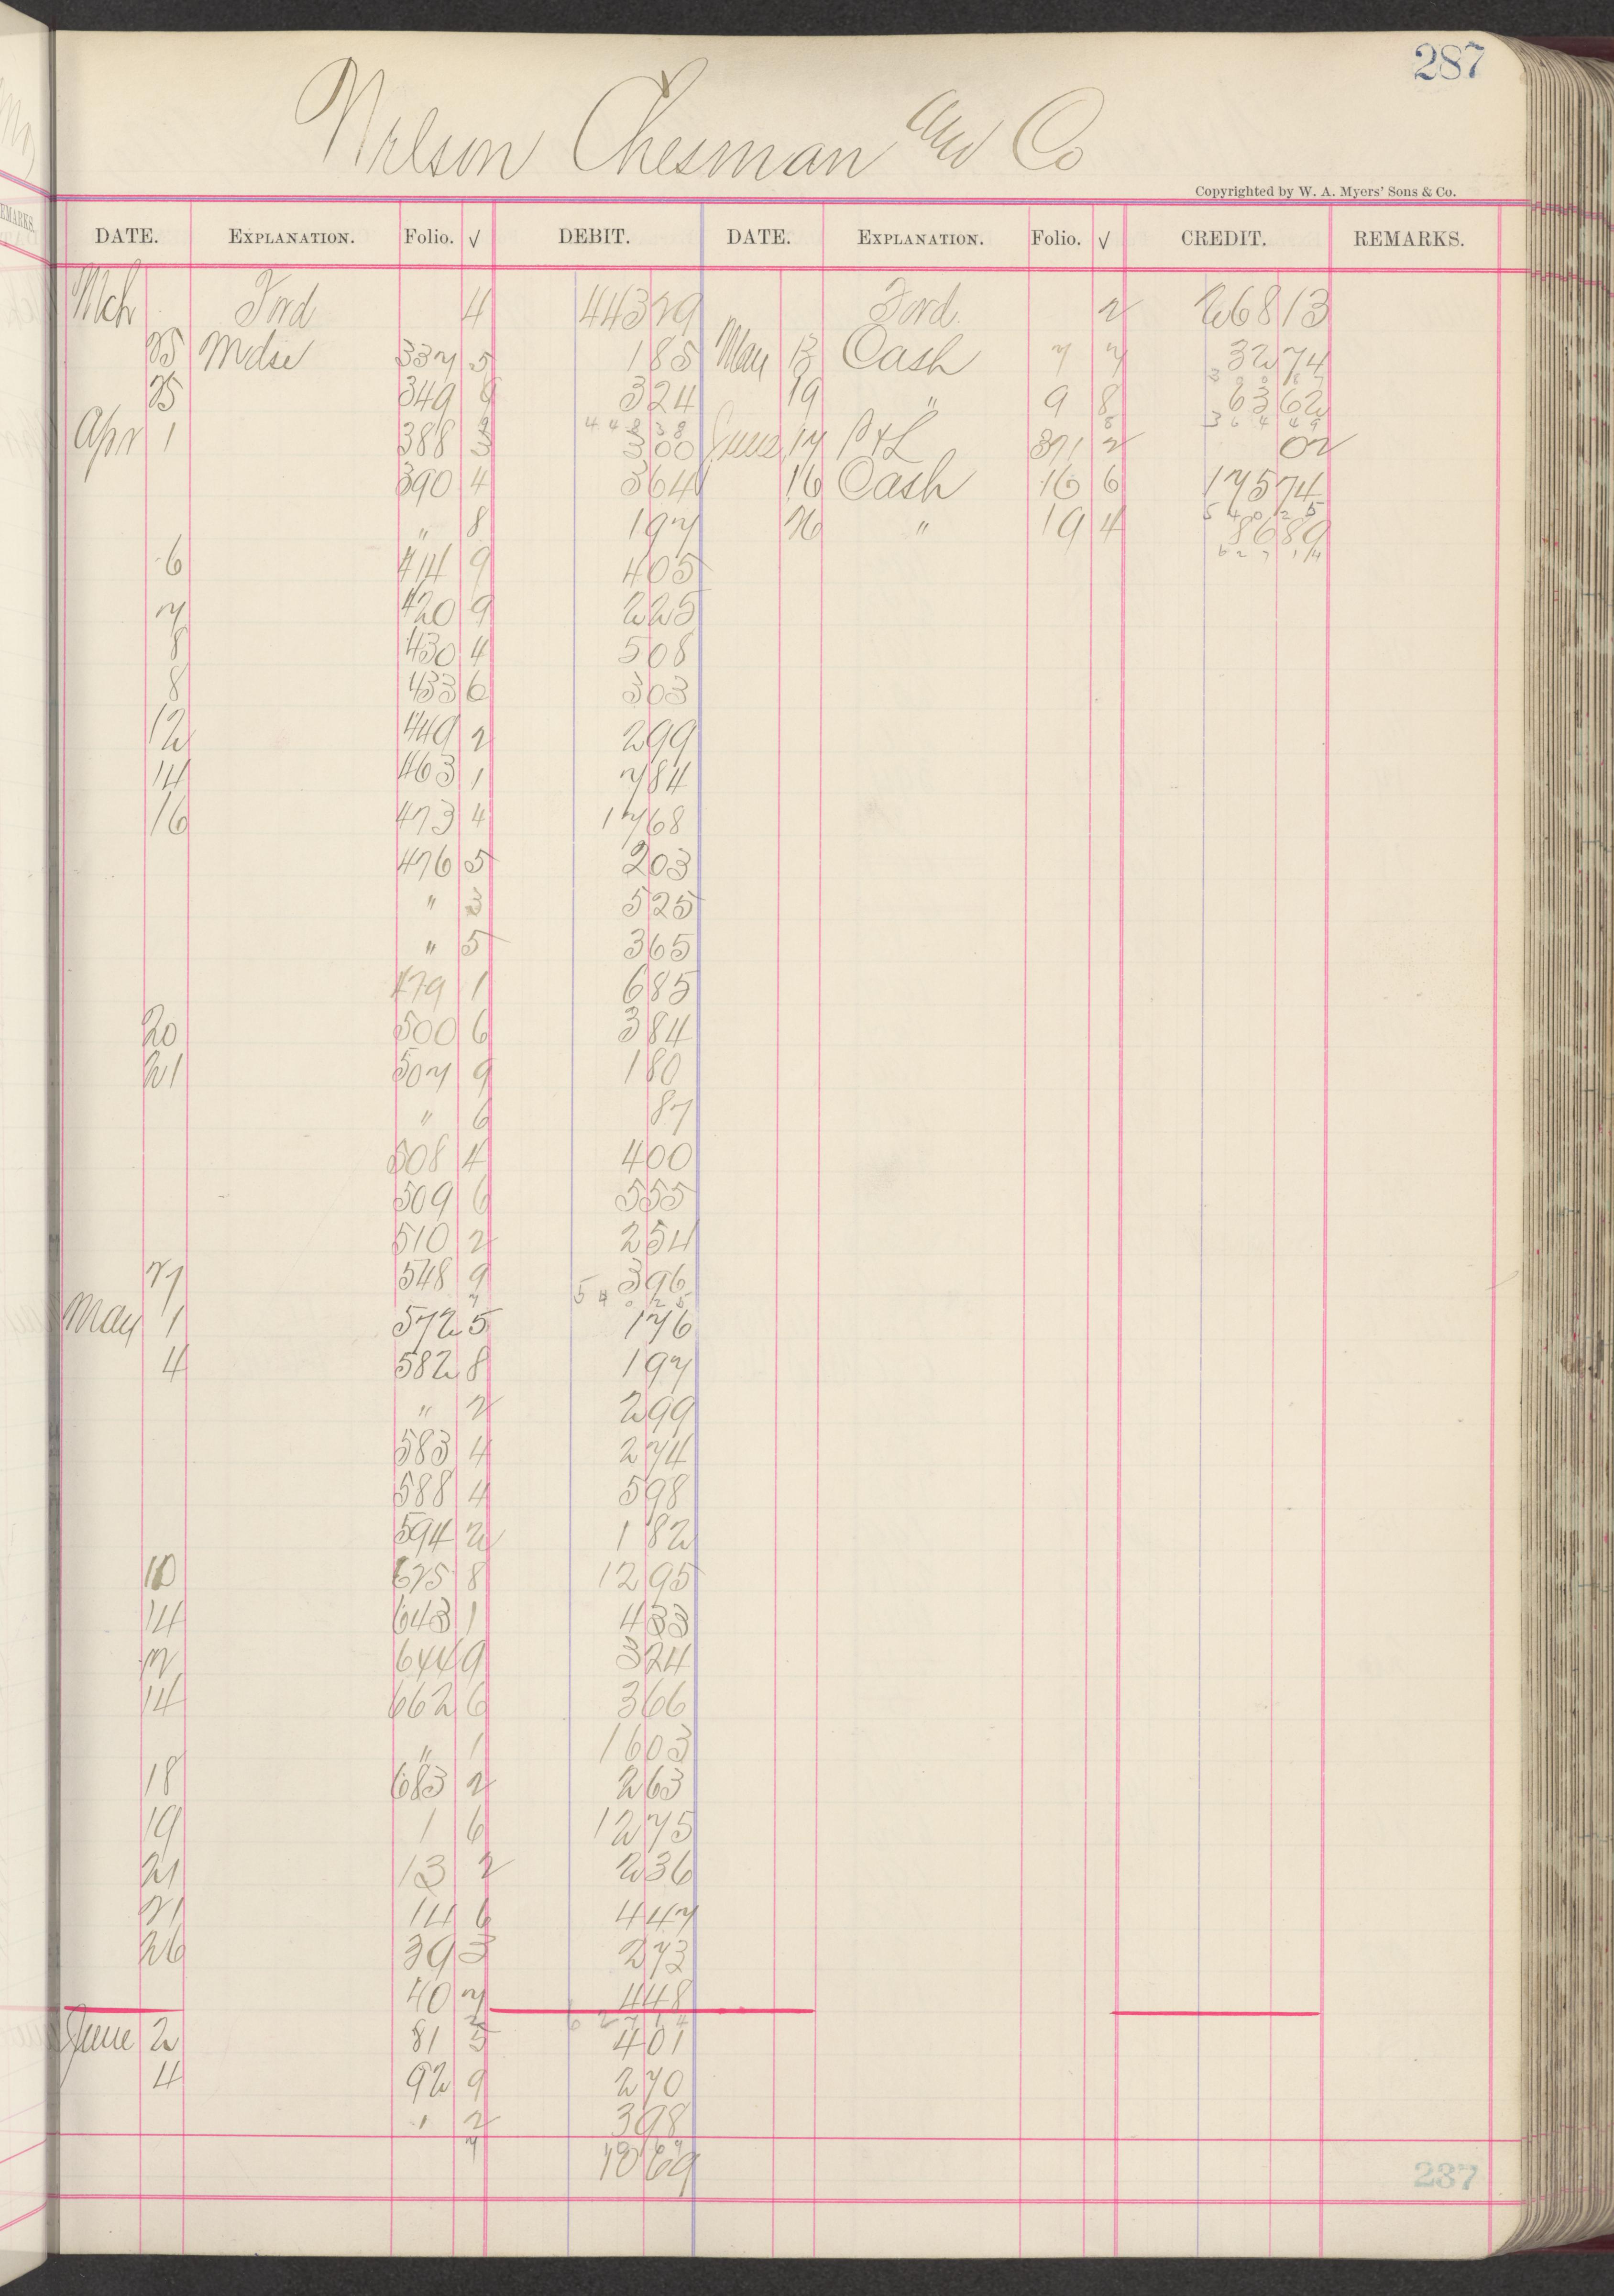 287
Nelson Chesman and Co
Copyrighted by W. A. Myers' Sons & Co.
DATE. EXPLANATION. Folio. √ DEBIT. DATE. EXPLANATION. Folio. √ CREDIT. REMARKS.
Mch Ford 4 44329 Ford 2 26813
25 Mdse 337 5 185 May 13 Cash 7 7 3274
349 9 324 19 " 9 8 6362
44838 36449
Apr 1 388 3 300 June 14 P&L 391 2 02
390 4 364 16 Cash 16 6 17574
" 8 197 26 " 19 4 8689
6 414 9 405
7 420 9 225
8 430 4 508
8 433 6 303
12 449 2 299
14 463 1 784
16 473 4 1768
476 5 203
" 3 525
" 5 365
479 1 685
20 500 6 384
21 507 9 180
" 6 87
508 4 400
509 6 555
510 2 254
27 548 9 396
54025
May 1 572 5 176
4 582 8 197
" 2 299
583 4 274
588 4 598
594 2 182
10 625 8 1295
14 643 1 433
644 9 324
14 662 6 366
" 1 1603
18 683 2 263
19 1 6 1275
21 13 2 236
21 14 6 447
26 39 3 273
40 7 448
62714
June 2 81 3 401
4 92 9 270
" 2 398
1069
237